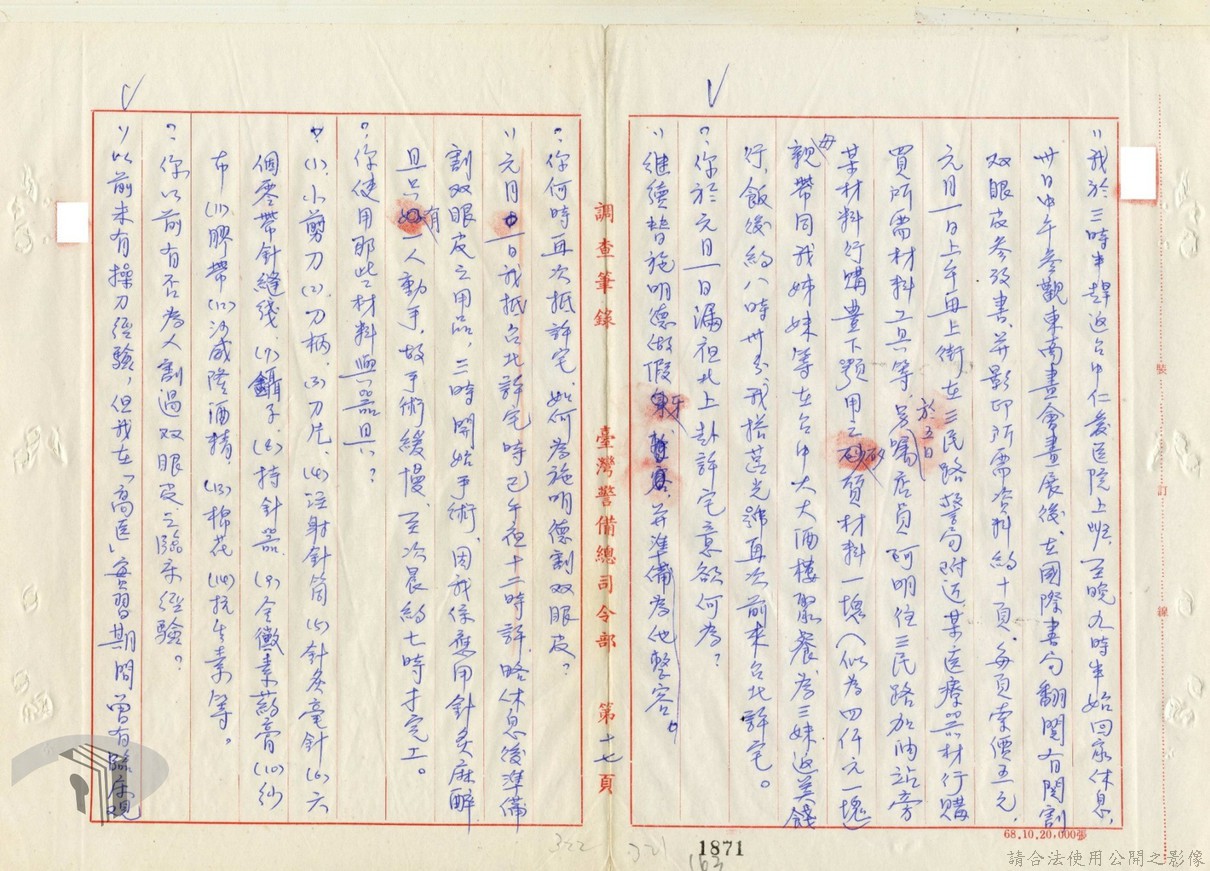 ㄐ我於三時半趕返台中仁愛医院上班，至晚九時半始回家休息，
卅日中午參觀東南畫會畫展後，在國際書局翻閱有関割
双眼皮参攷書，并影印所需資料約十頁，每頁索價五元，
元月一日上午再上街在三民路警局附近某医療器材行購
買所需材料工具等，另囑店員阿明於五日住三民路加油站旁
某材料行購置下顎用之矽質材料一塊（似為四仟元一塊
母親帶同我姊妹等在台中大大酒樓聚餐，為三妹返美餞
行，飯後約八時卅分我搭莒光號再次前來台北許宅。
？你於元月一日漏夜北上赴許宅意欲何為？
ㄐ継續替施明德做假牙，并準備為他整容。
調查筆錄　臺灣警備總司令部　第十七頁
？你何時再次抵許宅，如何為施明德割双眼皮？
ㄐ元月一日我抵台北許宅時已午夜十二時許，略休息後準備
割双眼皮之用品，三時開始手術，因我係應用針灸麻醉
且只有一人動手，故手術緩慢，至次晨約七時才完工。
？你使用那些材料與器具？
(1)小剪刀(2)刀柄，(3)刀片，(4)注射針筒(5)針灸毫針(6)六
個零帶針縫綫，(7)鑷子，(8)持針器，(9)金黴素葯膏(10)紗
布(11)膠帶(12)沙威隆酒精，(13)棉花(14)抗生素等。
？你以前有否為人割過双眼皮之臨床經驗？
ㄐ以前未有操刀經驗，但我在「高医」實習期間曾有臨床觀
68.10.20,000張
裝訂線
322
321
1871
163
請合法使用公開之影像